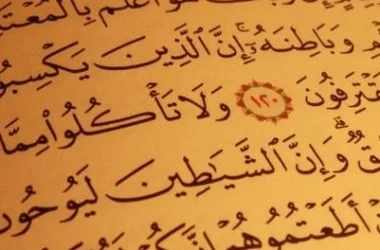 هُوَ أَعْلَمُ بِالْمُعْتَ
وَبَاطِنَهُۥٓ ۚ إِنَّ ٱلَّذِينَ يَكْسِبُو
قْتَرِفُونَ ١٢٠ وَلَا تَأْكُلُوا۟ مِمَّا
قٌ ۗ وَإِنَّ ٱلشَّيَٰطِينَ لَيُوحُونَ
أَطَعْتُمُوهُمْ إِنَّكُمْ